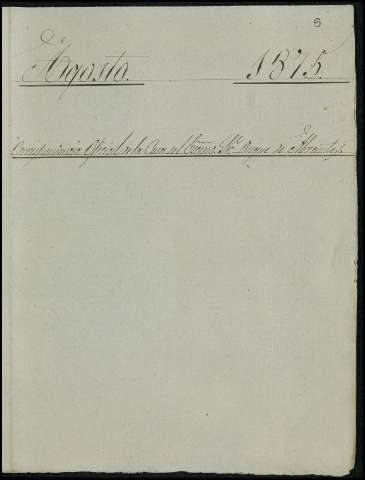 5
Agosto. 1875.
Correspondencia Oficial de la Casa del Excmo. Sr. Duque de Abrantes.